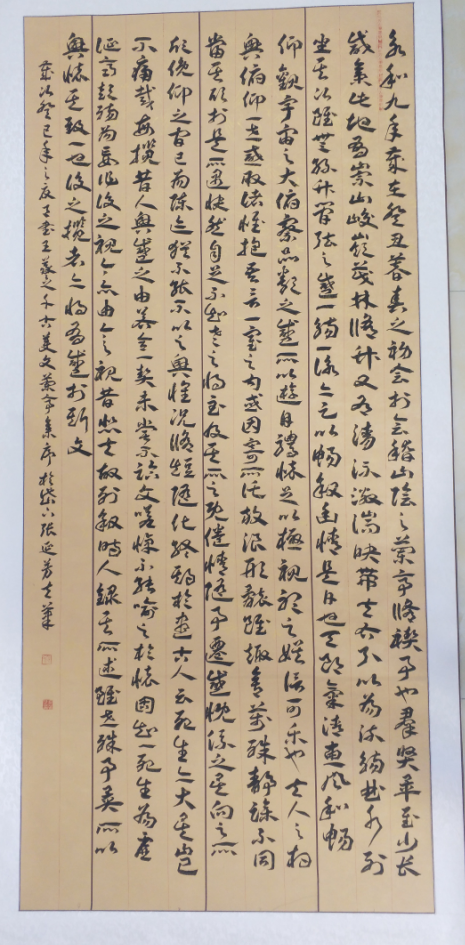 永和九年歲在癸丑暮春之初會於會稽山陰之蘭亭脩禊事也羣賢畢至少長
咸集此地有崇山峻嶺茂林脩竹又有清流激湍映帶左右引以為流觴曲水列
坐其次雖無絲竹管弦之盛一觴一詠亦足以暢敘幽情是日也天朗氣清惠風和暢
仰觀宇宙之大俯察品類之盛所以遊目騁懷足以極視聽之娛信可樂也夫人之相
與俯仰一世或取諸懷抱悟言一室之內或因寄所託放浪形骸雖趣舍萬殊靜躁不同
當其欣於是所遇快然自足不知老之將至及其所之既倦情隨事遷感慨係之矣向之所
欣俛仰之間已為陳迹猶不能不以之興懷況脩短隨化終期於盡古人云死生亦大矣豈
不痛哉每攬昔人興感之由若合一契未嘗不臨文嗟悼不能喻之於懷固知一死生為虛
誕齊彭殤為妄作後之視今亦由今之視昔悲夫故列敘時人錄其所述雖世殊事異所以
興懷其致一也後之攬者亦將有感於斯文
歲次癸巳年之夏書王羲之千古美文蘭亭集序於岱下張延芳